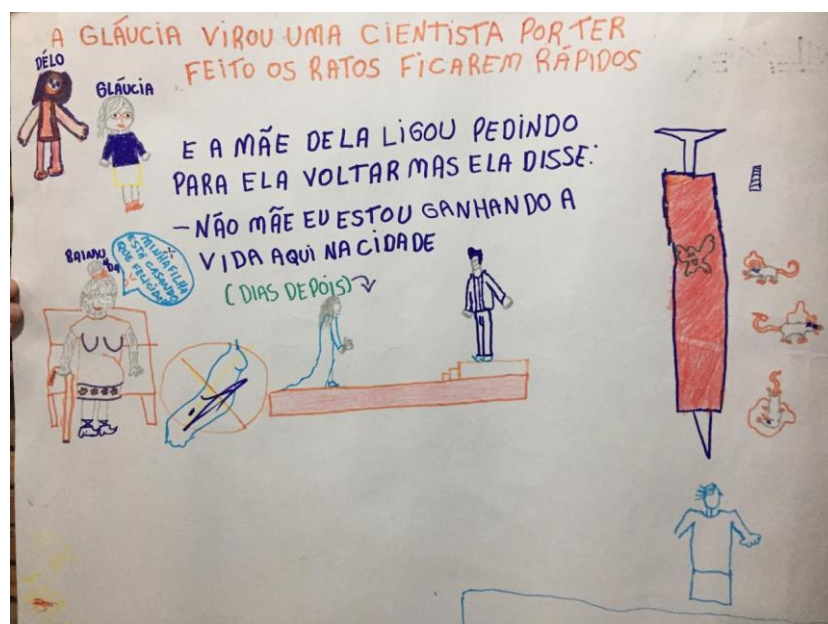 A GLÁUCIA VIROU UMA CIENTISTA POR TER
FEITO OS RATOS FICAREM RÁPIDOS
DÉLO
GLÁUCIA
E A MÃE DELA LIGOU PEDINDO
PARA ELA VOLTAR MAS ELA DISSE:
- NÃO MÃE EU ESTOU GANHANDO A
VIDA AQUI NA CIDADE
(DIAS DEPOIS)
MINHA FILHA
ESTÁ CASANDO
QUE FELICIDADE